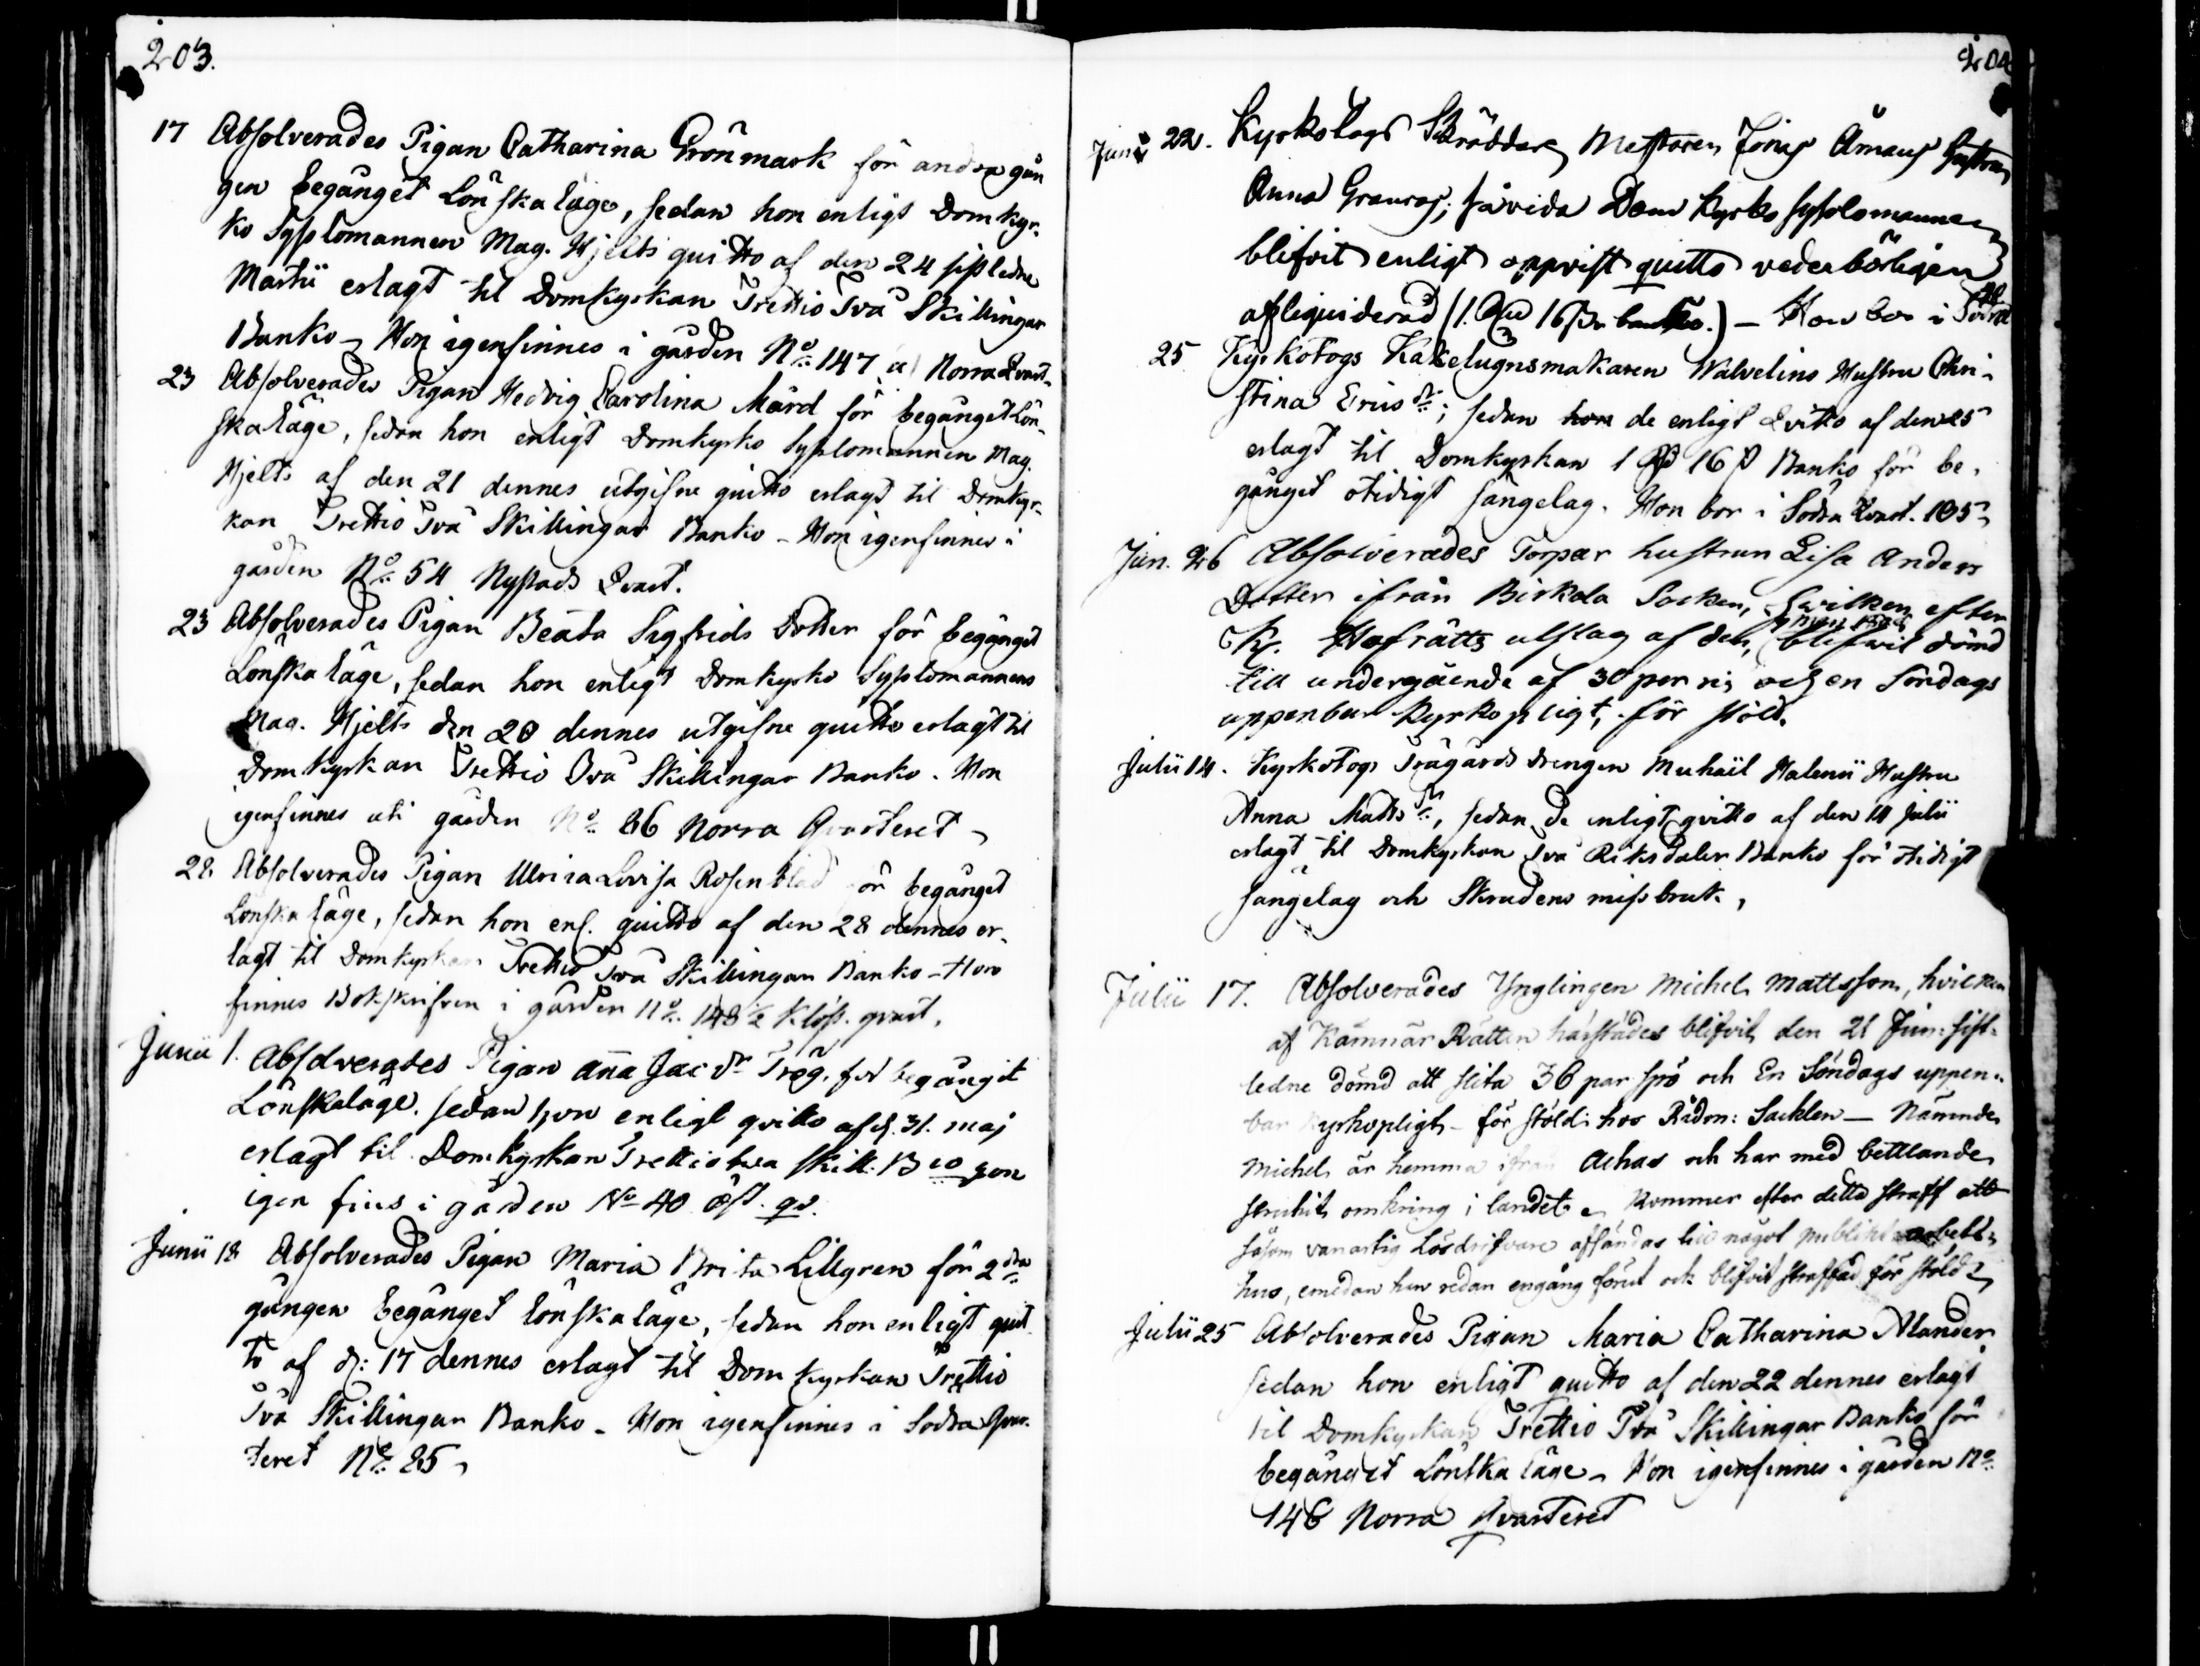 203.
17 Absolverades Pigan Catharina Grönmark för andra gån
gen begånget Lönskaläge, sedan hon enligt Domkyr-
ko Sysslomannen Mag. Hjelts quitto af den 24 sistledne
Martii erlagt til Domkyrkan Trettio Två Skillingar
Banko – Hon igenfinnes i gården No 147 a) Norra Qvart.
23 Absolverades Pigan Hedvig Carolina Mård för begånget Lön-
skaläge, sedan hon enligt Domkyrko Sysslomannen Mag.
Hjelts af den 21 dennes utgifne quitto erlagt til Domkyr-
kan Trettio Två Skillingar Banko – Hon igenfinnes i
gården No 54 Nystads Qvart.
23 Absolverades Pigan Beata Sigfrids Dotter för begånget
Lönskaläge, sedan hon enligt Domkyrko Sysslomannens
Mag. Hjelts den 20 dennes utgifne quitto erlagt til
Domkyrkan Trettio Två Skillingar Banko. Hon
igenfinnes uti gården No 86 Norra Qvarteret
28 Absolverades Pigan Ulrica Lovisa Rosenblad för begånget
Lönskaläge, sedan hon enl. quitto af den 28 dennes er-
lagt til Domkyrkan Trettio Två Skillingar Banko – Hon
finnes Bokskrifven i gården No 148½ Klöst. qvart.
Junii 1. Absolverades Pigan Anna Jac dr Träg. för begångit
Lönskaläge. sedan hon enligt qvitto af d. 31. maj
erlagt til Domkyrkan Trettiotva skill. Bco hon
igen fins i gården No 40 öst. qv.
Junii 18 Absolverades Pigan Maria Brita Lillgren för 2dra
gången begånget Lönskaläge, sedan hon enligt quit
to af d: 17 dennes erlagt til Domkyrkan Trettio
Två Skillingar Banko – Hon igenfinnes i Södra Qvar-
teret No 85
204
Junii 22. Kyrkotogs Skräddare Mästaren Hustru
Anna såvida Dom Kyrko sysslomannen
blifvit enligt uppvist quitto vederbörligen
afliquiderad (1. Rd 16 s banko.) – Hon bor i Södra
25 Kyrkotogs Kakelugnsmakaren Walvelins Hustru Chri-
stina Erics dr; sedan hon de enligt Qvitto af den 25
erlagt til Domkyrkan 1 Rd 16 s Banko för be-
gånget otidigt sängelag. Hon bor i Södra Qvart. 105
Jun. 26 Absolverades Torpar hustrun Lisa Anders
Dotter ifrån Birkala Socken, hvilken efter
K. Hofrätts utslag af den, blifvit dömd
till undergående af 30 par ris och en Söndags
uppenbar kyrkopligt, för stöld.
Julii 14. Kyrkotogs Trägårds drengen Michaël Halenii Hustru
Anna Matts dr, sedan de enligt qvitto af den 14 Julii
erlagt til Domkyrkan Två Riksdaler Banko för otidigt
sängelag och Skrudens missbruk.
Julii 17. Absolverades Ynglingen Michel Mattsson, hvilken
af Kämnär Rätten härstädes blifvit den 21 Jun: sist-
ledne dömd att slita 36 par spö och En Söndags uppen-
bar Kyrkopligt – för stöld: hos Rådm: Sacklen – Nämnde
Michel är hemma ifrån Achas och har med bettlande
strukit omkring i landet. Kommer efter detta straff att
såsom vanartig Lösdrifvare afsändas till något publikt arbets-
hus, emedan han redan engång förut ock blifvit straffad för stöld
Julii 25 Absolverades Pigan Maria Catharina Alander
sedan hon enligt quitto af den 22 dennes erlagt
til Domkyrkan Trettio Två Skillingar Banko för
begånget Lönskaläge – Hon igenfinnes i gården No
146 Norra Qvarteret